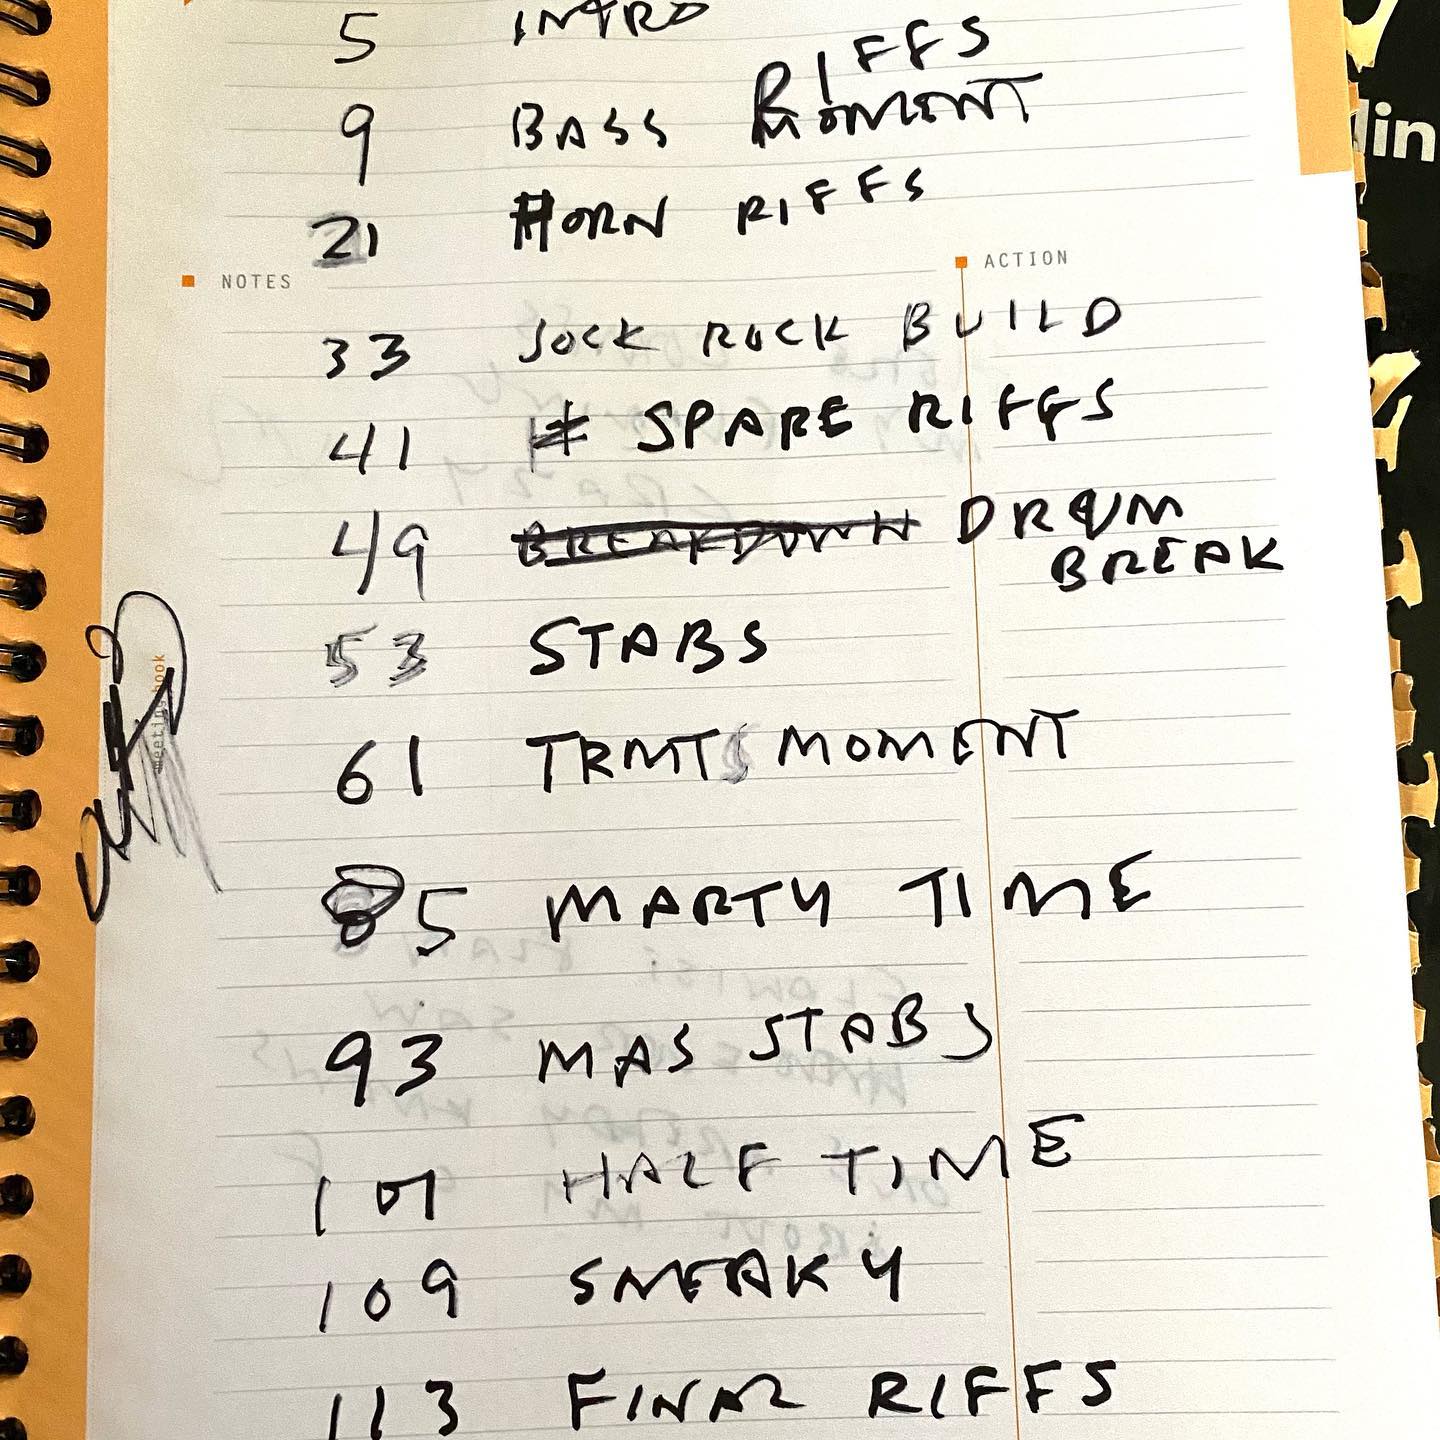 5 INTRO
RIFFS
9 BASS MOMENT
21 HORN RIFFS
NOTES ACTION
33 JOCK ROCK BUILD
41 SPARE RIFFS
49 BREAKDOWN DRUM
BREAK
53 STABS
61 TRMTS MOMENT
85 MARTY TIME
93 MAS STABS
101 HALF TIME
109 SNEAKY
113 FINAL RIFFS
lin